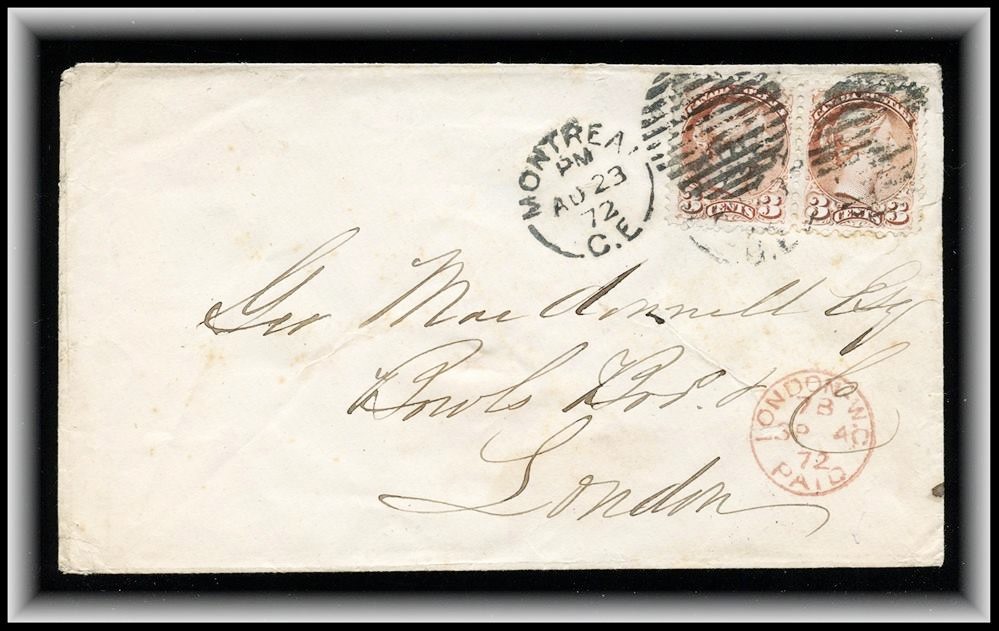 MONTREAL
PM
AU 23
72
C.E.
CANADA POSTAGE
3 CENTS 3
CANADA POSTAGE
3 CENTS 3
Geo Macdonnell Esq
Bowls Bros. & Co
London
LONDON. W.C
7B
SP 4
72
PAID